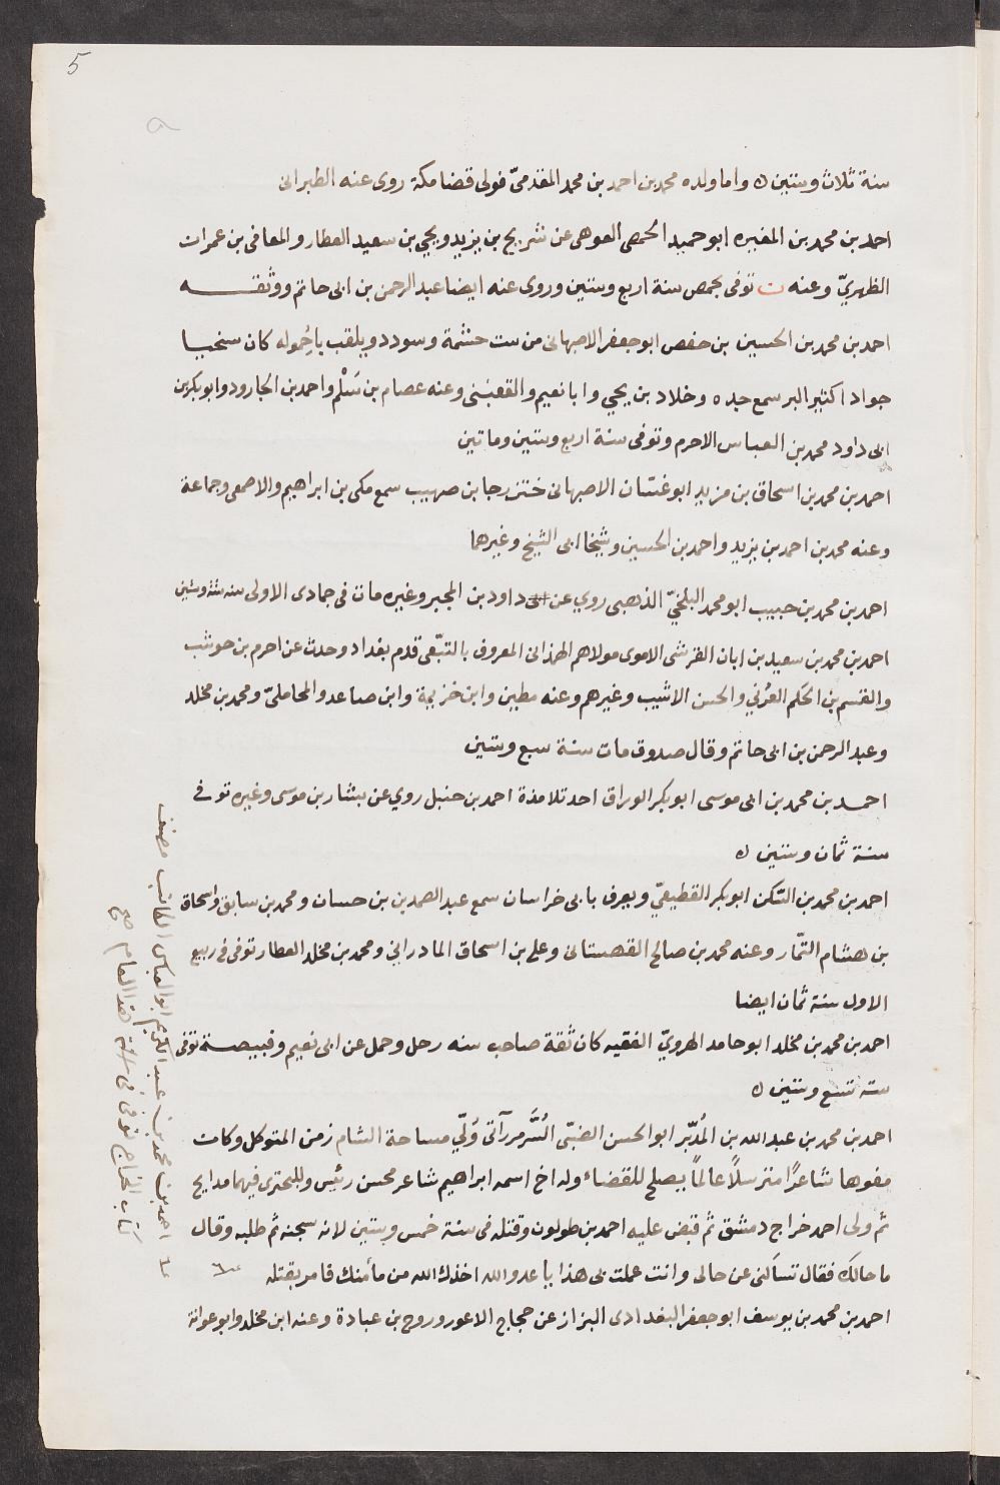 5
سنة ثلاث وستين ه واما ولده محمد بن احمد بن محمد المقدميّ فولى قضا مكة روى عنه الطبرانى
احمد بن محمد بن المغيره ابو حميد الحمصى العوهى عن شريح بن يزيد ويحيي بن سعيد العطار والمعافى بن عمران
الظهريّ وعنه ن توفى بحمص سنة اربع وستين وروى عنه ايضا عبد الرحمن بن ابى حاتم ووثقه
احمد بن محمد بن الحسين بن حفص ابو جعفر الاصبهانى من بيت حشمة وسودد ويلقب باحُموله كان سخيا
جوادا كثير البر سمع جده وخلاد بن يحيي وابا نعيم والقعبَنى وعنه عصام بن سَلْم واحمد بن الجارود وابو بكر بن
ابى داود محمد بن العباس الاحرم وتوفى سنة اربع وستين وماتين
احمد بن محمد بن اسحاق بن مزيد ابو غسّان الاصبهانى ختن رجا بن صهيب سمع مكى بن ابراهيم والاصمعى وجماعة
وعنه محمد بن احمد بن يزيد واحمد بن الحسين وشيخا ابى الشيخ وغيرهما
احمد بن محمد بن حبيب ابو محمد البلخيّ الذهبى روي عن داود بن المحبر وغيره مات فى جمادى الاولى سنه ستة وستين
احمد بن محمد بن سعيد بن ابان القرشى الاموى مولاهم الهمذانى المعروف بالتبّعى قدم بغداد وحدث عن احرم بن حوشب
والقسم بن الحكم العُرني والحسن الاشيب وغيرهم وعنه مطين وابن خزيمة وابن صاعد والمحامليّ ومحمد بن مخلد
وعبد الرحمن بن ابى حاتم وقال صدوق مات سنة سبع وستين
احمد بن محمد بن ابى موسى ابو بكر الوراق احد تلامذة احمد بن حنبل روي عن بشار بن موسى وغيره توفى
سنة ثمان وستين ه
احمد بن محمد بن السّكن ابو بكر القطيعيّ ويعرف بابى خراسان سمع عبد الصمد بن حسان ومحمد بن سابق واسحاق
بن هشام التمّار وعنه محمد بن صالح القهستانى وعلى بن اسحاق المادرانى ومحمد بن مخلد العطار توفى فى ربيع
الاول سنة ثمان ايضا
احمد بن محمد بن مخلد ابو حامد الهرويّ الفقيه كان ثقة صاحب سنه رحل وحمل عن ابى نعيم وقبيصة توفى
سنة تسع وستين ه
احمد بن محمد بن عبد الله بن المُدبّر ابو الحسن الضبّى السُّر مرآتى وَلّي مساحة الشام زمن المتوكل وكان
مفوها شاعرًا مترسلًا عالمًا يصلح للقضاء وله اخ اسمه ابراهيم شاعر محسن رئيس وللبحترى فيهما مدايح
ثم ولى احمد خراج دمشق ثم قبض عليه احمد بن طولون وقتله فى سنة خمس وستين لانه سجنه ثم طلبه وقال
ما حالك فقال تسألنى عن حالى وانت عملت بى هذا يا عدو الله اخذك الله من مأمنك فامر بقتله
احمد بن محمد بن يوسف ابو جعفر البغدادى البزاز عن حجاج الاعور وروح بن عبادة وعنه ابن مخلد وابو عوانة
احمد بن محمد بن عبد الكريم ابو العباس الكاتب مصنف
كتاب الخراج توفى فى هذا العام صح